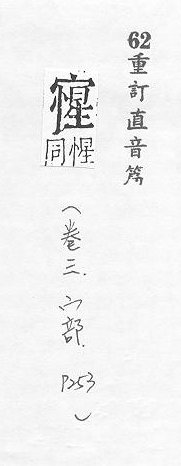 62重訂直音篇
惺
同
（卷三.宀部.P253）